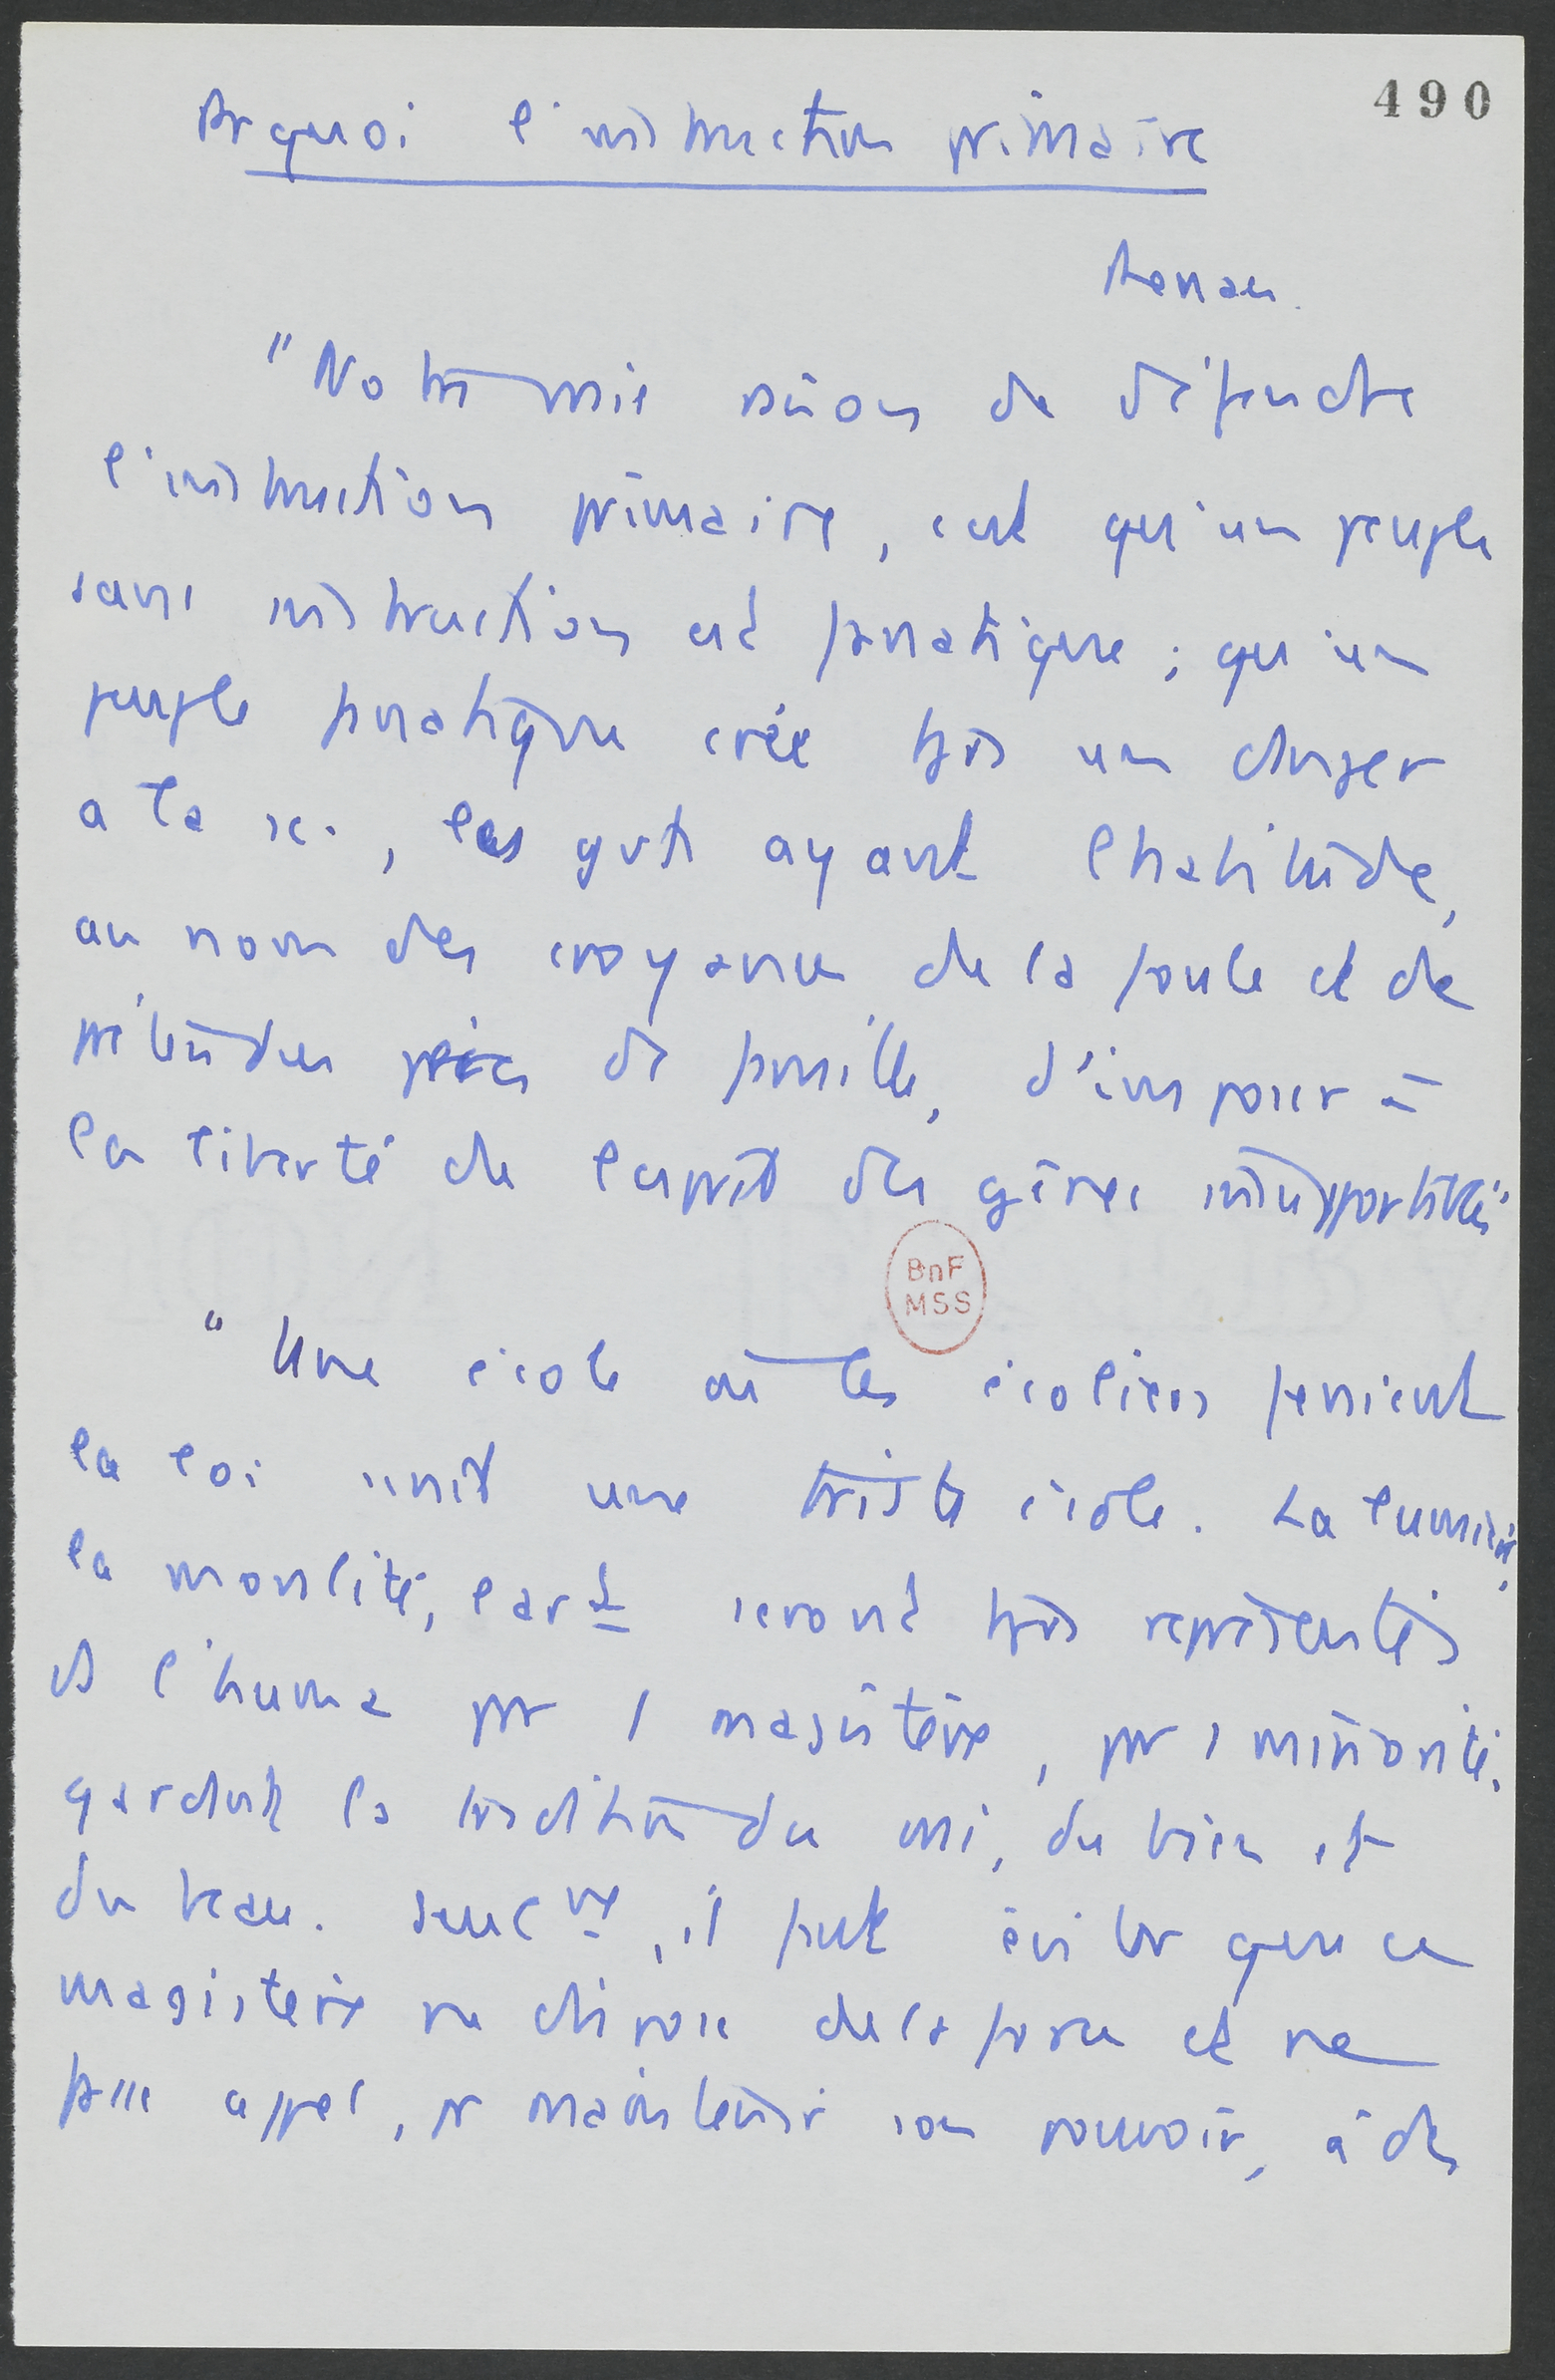 490
Pr quoi l'instruction primaire
Renan.
"Notre vraie raison de défendre
l'instruction primaire, c'est qu'un peuple
sans instruction est fanatique ; qu'un
peuple fanatique crée tjrs un danger
à la sc., les gvts ayant l'habitude,
au nom des croyances de la foule et de
prétendus pères de famille, d'imposer à
la liberté de l'esprit des gênes insupportables"
BnF
MSS
"Une école où les écoliers feraient
la loi serait une triste école. La lumière,
la moralité, l'art seront tjrs représentés
ds l'huma pr 1 magistère, pr 1 minorité,
gardant la tradition du vrai, du bien et
du beau. Seulemt, il faut éviter que ce
magistère ne dispose de la force et ne
fasse appel, pr maintenir son pouvoir, à des